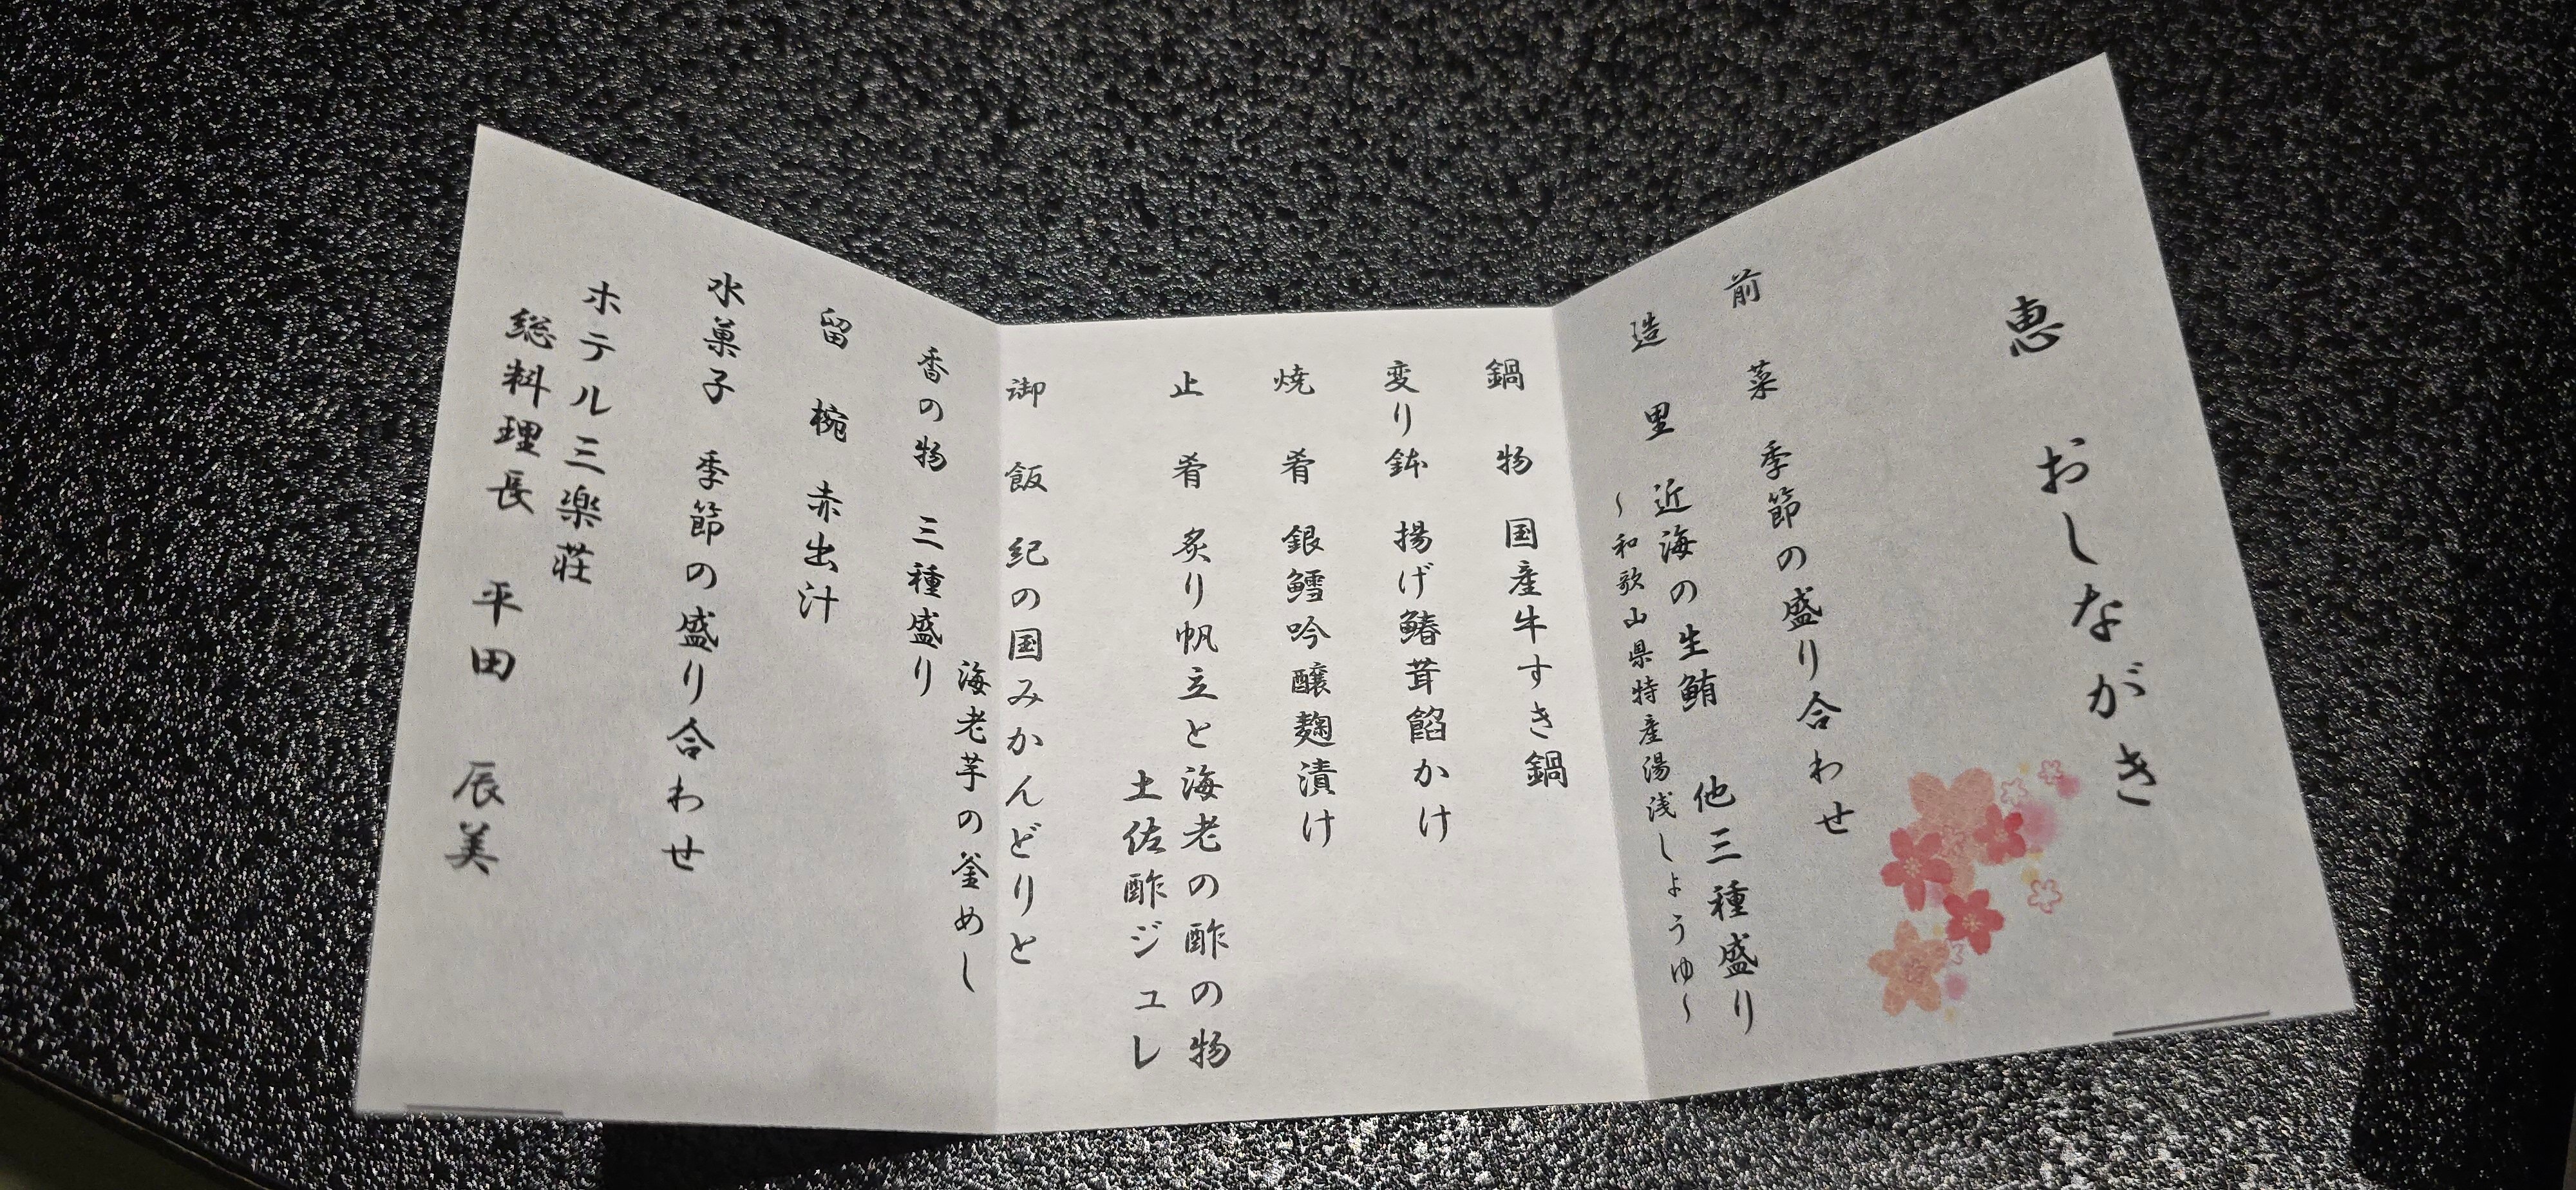 恵 おしながき
前菜 季節の盛り合わせ
造里 近海の生鮪 他三種盛り
～和歌山県特産湯浅しょうゆ～
鍋物 国産牛すき鍋
変り鉢 揚げ鰆茸餡かけ
焼肴 銀鱈吟醸麹漬け
止肴 炙り帆立と海老の酢の物
土佐酢ジュレ
御飯 紀の国みかんどりと
海老芋の釜めし
香の物 三種盛り
留椀 赤出汁
水菓子 季節の盛り合わせ
ホテル三楽荘
総料理長 平田 辰美